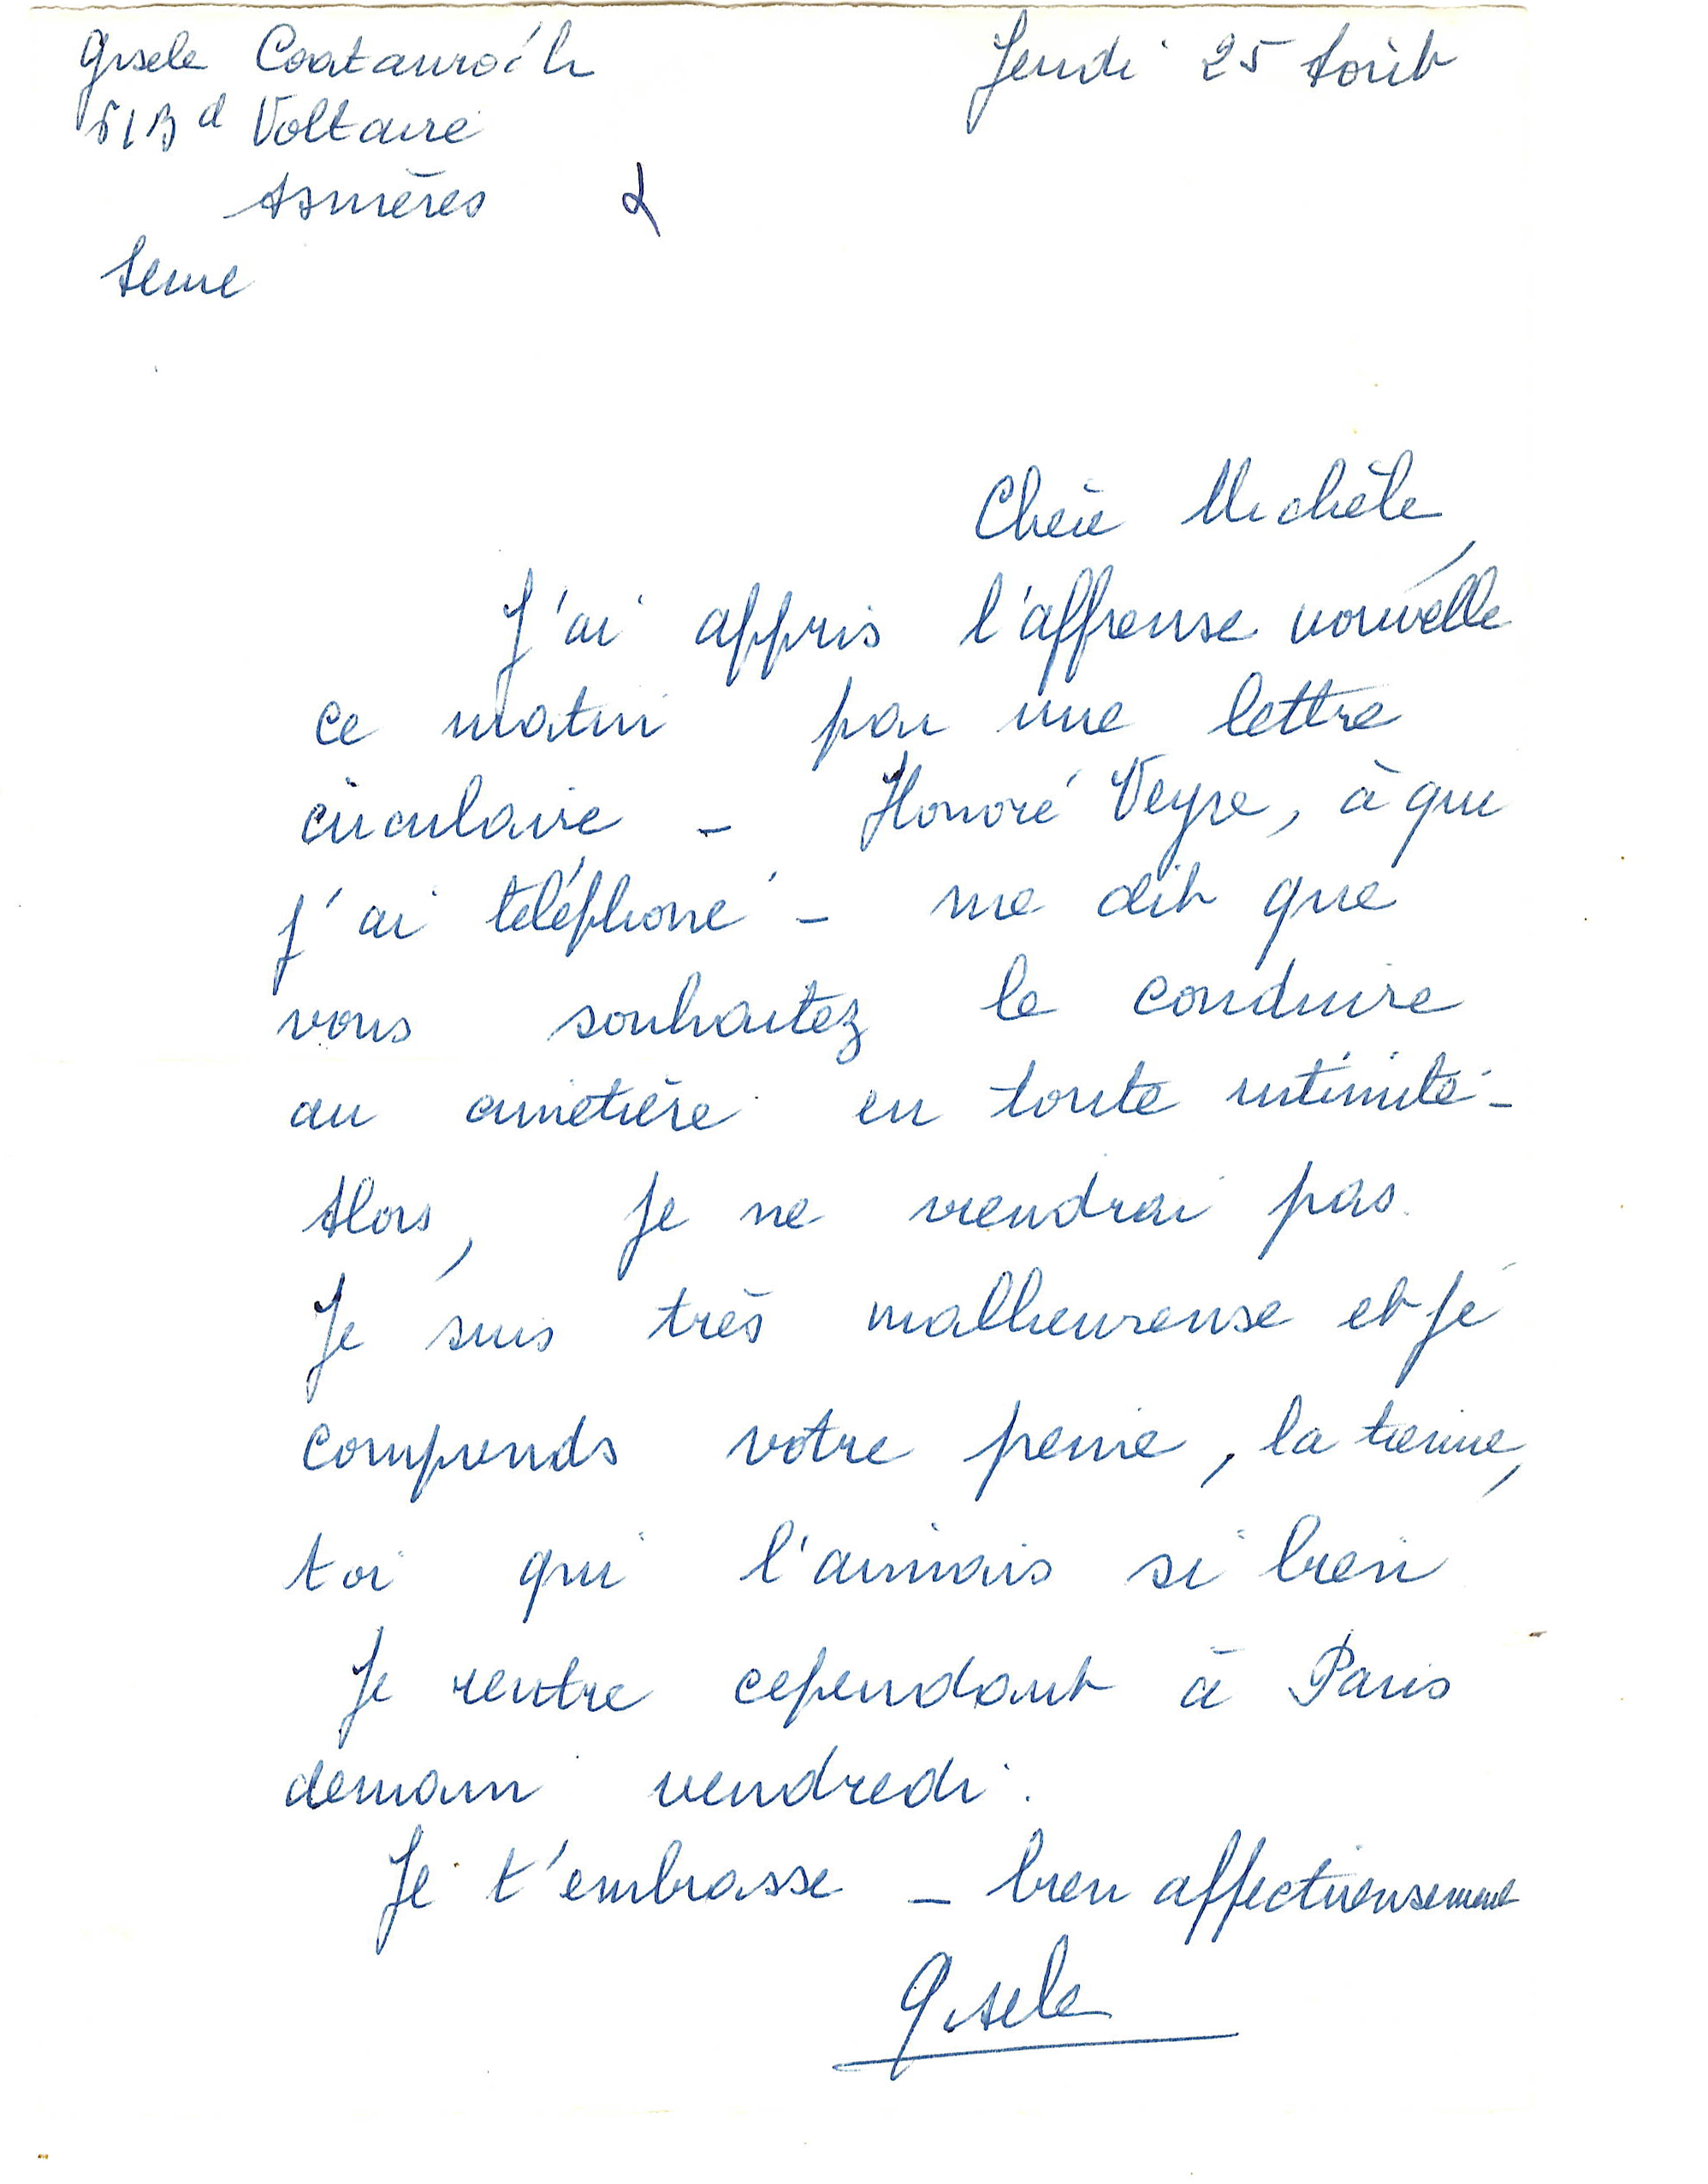 Gisele Coatanroc'h
51 Bd Voltaire
Asnières
Seine
Jeudi 25 Août
Chère Michèle,
J'ai appris l'affreuse nouvelle
ce matin par une lettre
circulaire – Honoré Veyre, à qui
j'ai téléphoné – me dit que
vous souhaitez le conduire
au cimetière en toute intimité –
Alors, je ne viendrai pas.
Je suis très malheureuse et je
comprends votre peine, la tienne,
toi qui l'aimais si bien
Je rentre cependant à Paris
demain vendredi.
Je t'embrasse – bien affectueusement
Gisele